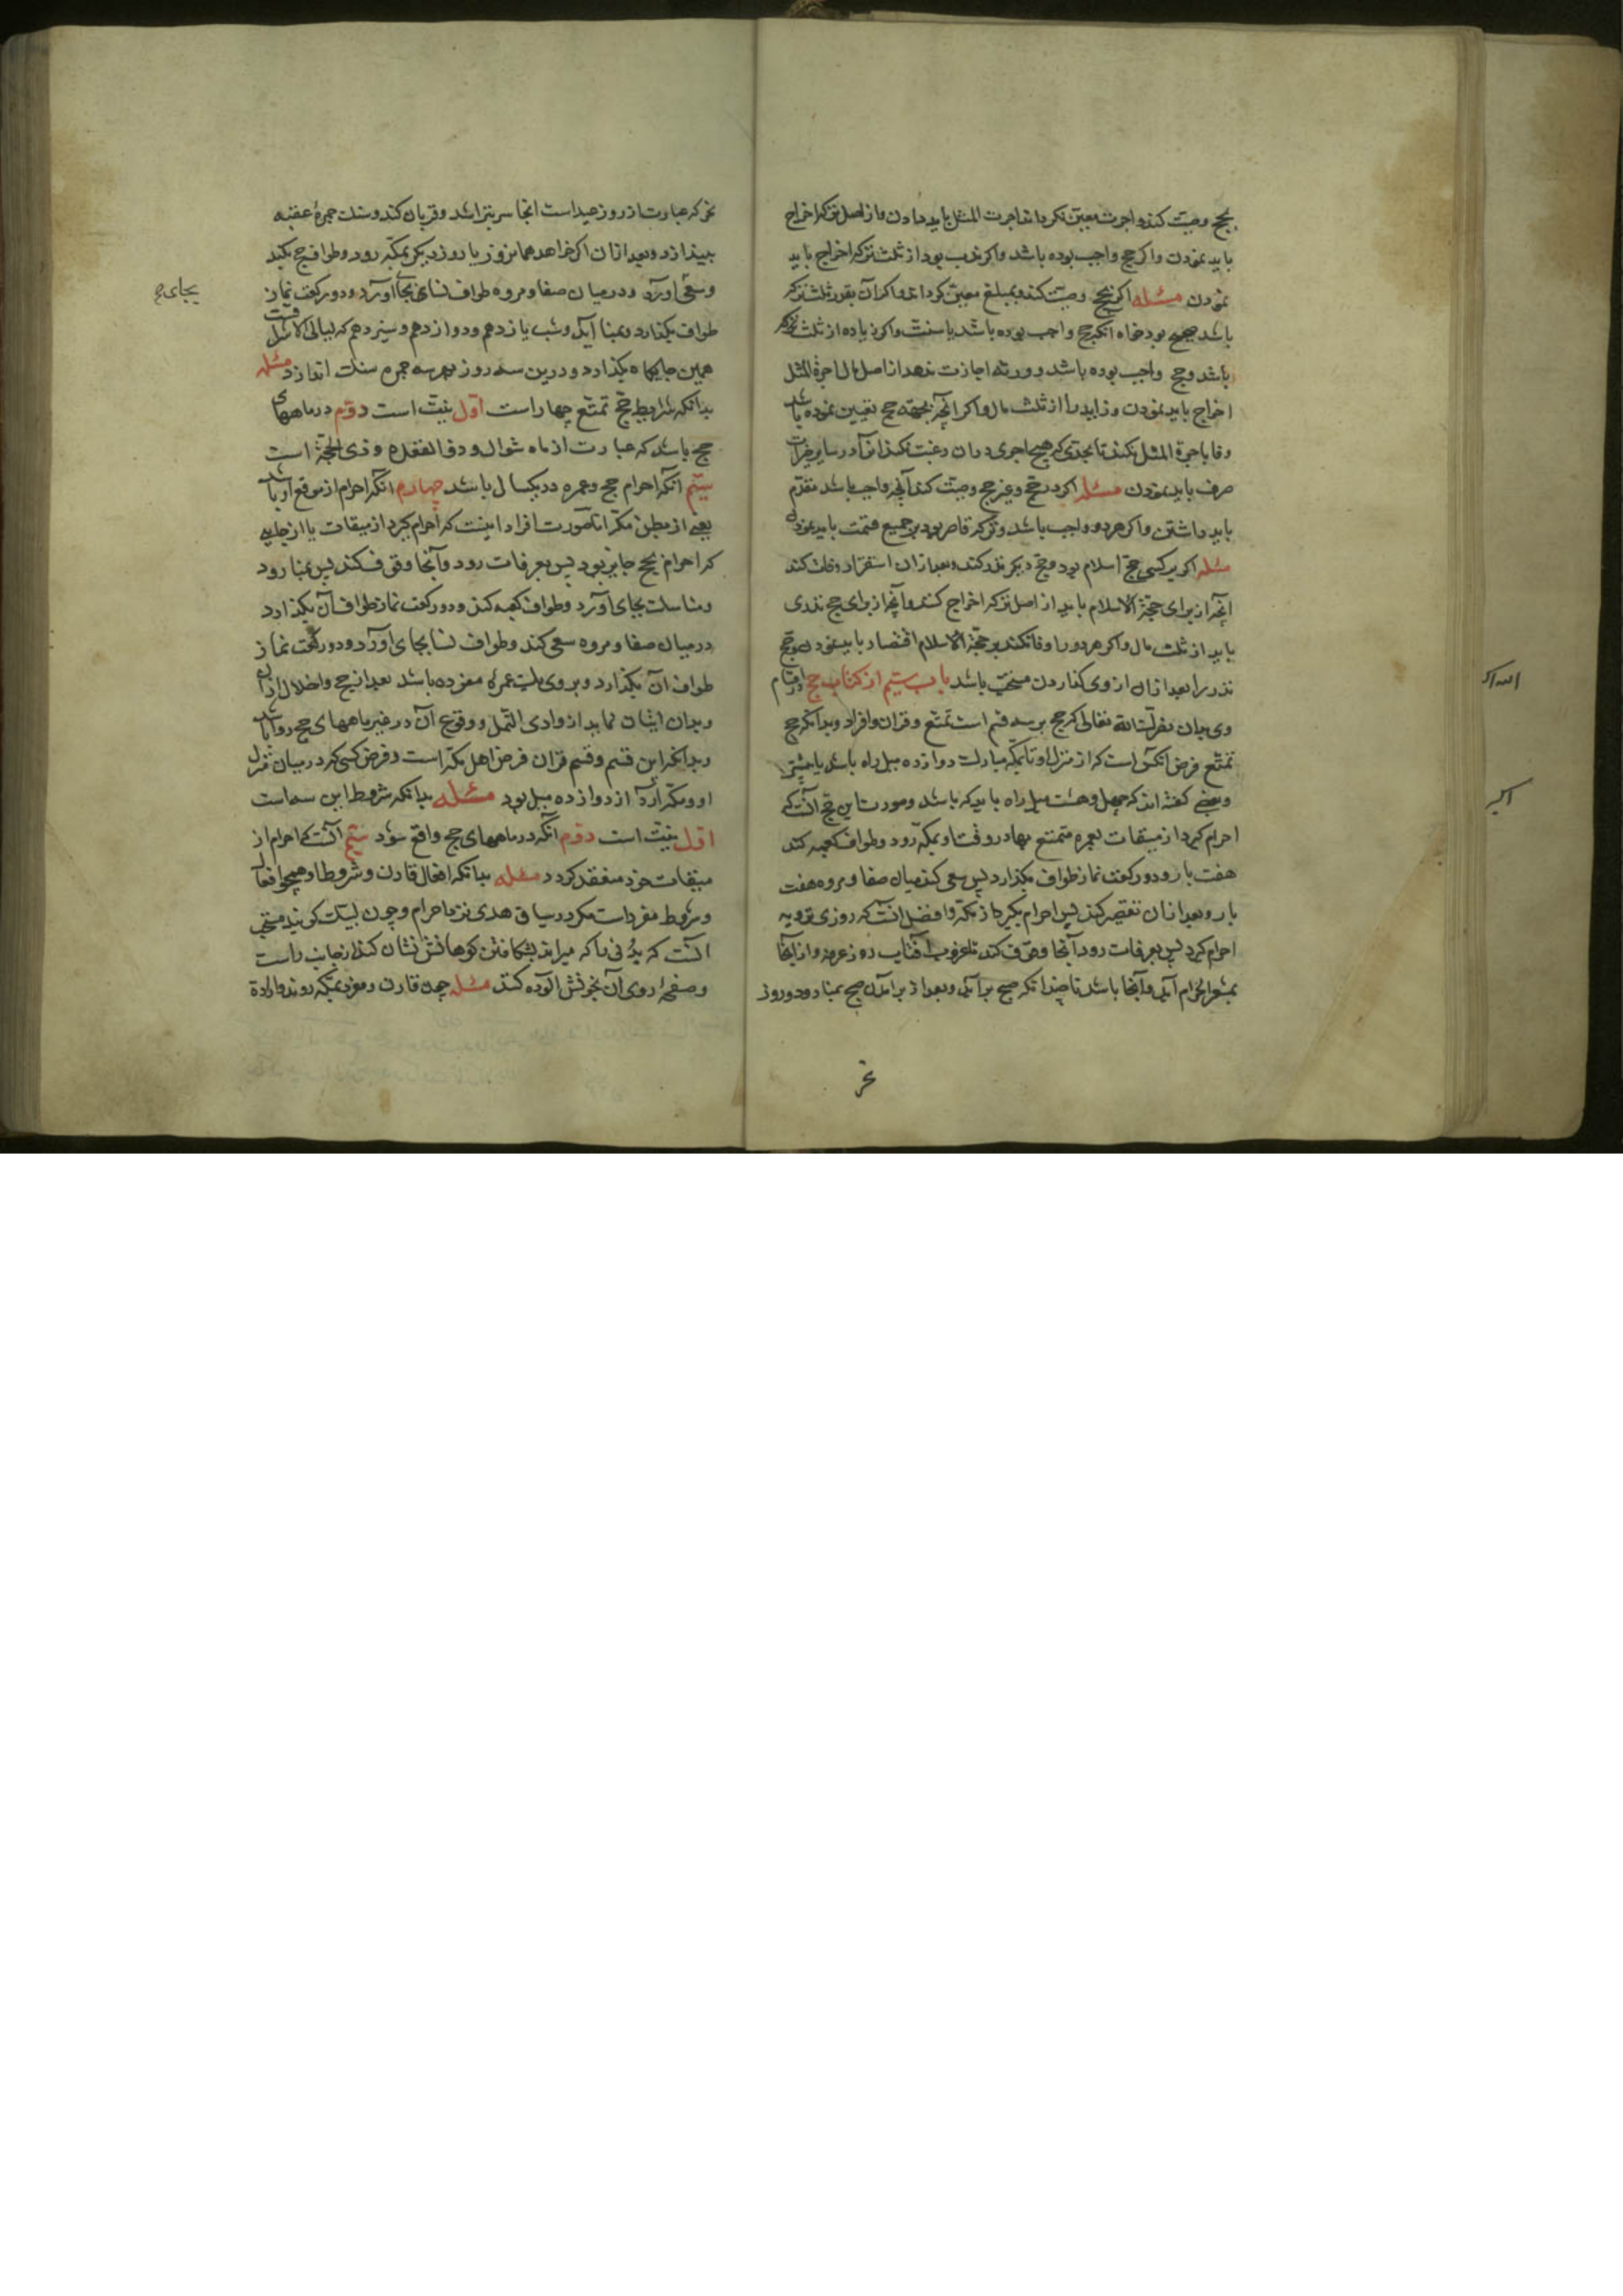 بحج وصیت کند و اجرت معین نکرداند اجرت المثل باید دادن و از اصل ترکه اخراج
باید نمودن و اکر حج واجب بوده باشد و اکر ندب بود از ثلث ترکه اخراج باید
نمودن مسئله اکر بحج وصیت کند و بمبلغ معین کرداند و اکر آن بقدر ثلث ترکه
باشد صحیح بود خواه انکه حج واجب بوده باشد یا سنت و اکر زیاده از ثلث ترکه
باشد و حج واجب بوده باشد و ورثه اجازت ندهد از اصل مال اجرة المثل
اخراج باید نمودن و زاید را از ثلث مال و اکر انچه بجهة حج تعیین نموده باشد
وفا باجرة المثل نکند تا بحدی که هیچ اجری دران رغبت نکند انرا در سایر خیرات
صرف باید نمودن مسئله اکر در حج و غیر حج وصیت کند آنچه واجب باشد مقدم
باید داشتن و اکر هر دو واجب باشد و ترکه قاصر بود بر جمیع قسمت باید نمودن
مسئله اکر بر کسی حج اسلام بود و حج دیکر نذر کند و بعد ازان استقرار وفات کند
انچه از برای حجة الاسلام باید از اصل ترکه اخراج کنند و آنچه از برای حج نذری
باید از ثلث مال و اکر هر دو را وفا نکند بر حجة الاسلام اقتصار باید نمود و حج
نذر را بعد ازان از وی کذاردن مستحب باشد باب سیم از کتاب حج در اقسام
وی بدان نصرک الله تعالی که حج بر سه قسم است تمتع و قران و افراد و بدانکه حج
تمتع فرض انکس است که از منزل او تا بمکه مبارک دوازده میل راه باشد یا بیشتر
و بعضی کفته اند که چهل و هشت میل راه باید که باشد و صورت این حج انست که
احرام کیرد از میقات بعمره متمتع بها در وقت او و بمکه رود و طواف کعبه کند
هفت بار و دو رکعت نماز طواف بکذارد پس سعی کند میان صفا و مروه هفت
بار و بعد ازان تقصیر کند پس احرام بکیرد از مکه و افضل انست که روزی ترویه
احرام کیرد پس بعرفات رود آنجا وقوف کند تا غروب آفتاب روز عرفه و از آنجا
بمشعر الحرام آید و آنجا باشد تا چندانکه صبح برآید و بعد از برآمدن صبح بمنا رود و روز
نحر
الله اکبر
اکبر
نحر که عبارت از روز عید است انجا سر بتراشد و قربان کند و سنک جمرۀ عقبه
بیندازد و بعد ازان اکر خواهد همان روز یا روز دیکر بمکه رود و طواف حج بکند
و سعی اورد و درمیان صفا و مروه طواف نسای بجا اورد و دو رکعت نماز
بجای حج
طواف بکذارد و بمنا آید و شب یازدهم و دوازدهم و سیزدهم که لیالی التشریق است
همین جایکاه بکذارد و درین سه روز بهر سه جمره سنک اندازد مسئله
بدانکه شرایط حج تمتع چهار است اول نیت است دوم در ماههای
حج باشد که عبارت از ماه شوال و ذو القعده و ذی الحجة است
سیم انکه احرام حج و عمره در یکسال باشد چهارم انکه احرام از موقع او باشد
یعنی از بطن مکه اما صورت افراد اینست که احرام کیرد از میقات یا از جایی
که احرام بحج جایز بود پس بعرفات رود و آنجا وقوف کند پس بمنا رود
و مناسک بجای آورد و طواف کعبه کند و دو رکعت نماز طواف آن بکذارد
درمیان صفا و مروه سعی کند و طواف نسا بجای اورد و دو رکعت نماز
طواف آن بکذارد و بر وی یک عمرۀ مفرده باشد بعد از حج و احلال ازان
و بدان اتیان نماید از وادی النمل و وقوع آن در غیر ماههای حج روا باشد
و بدانکه این قسم و قسم قران فرض اهل مکه است و فرض کسی که درمیان منزل
او و مکه از دوازده میل بود مسئله بدانکه شروط این سه است
اول نیت است دوم انکه در ماههای حج واقع شود سیم انست که احرام از
میقات خود منعقد کرد د مسئله بدانکه افعال قارن و شروط او همچو افعال
و شروط مفرد است مکر در سیاق هدی نزد احرام و چون لبیک کویند مستحب
انست که بدنی را که میراند بشکافتن کوهانش نشان کند از جانب راست
و صفحۀ روی آن بخونش آلوده کند مسئله چون قارن و مفرد بمکه روند و ارادة